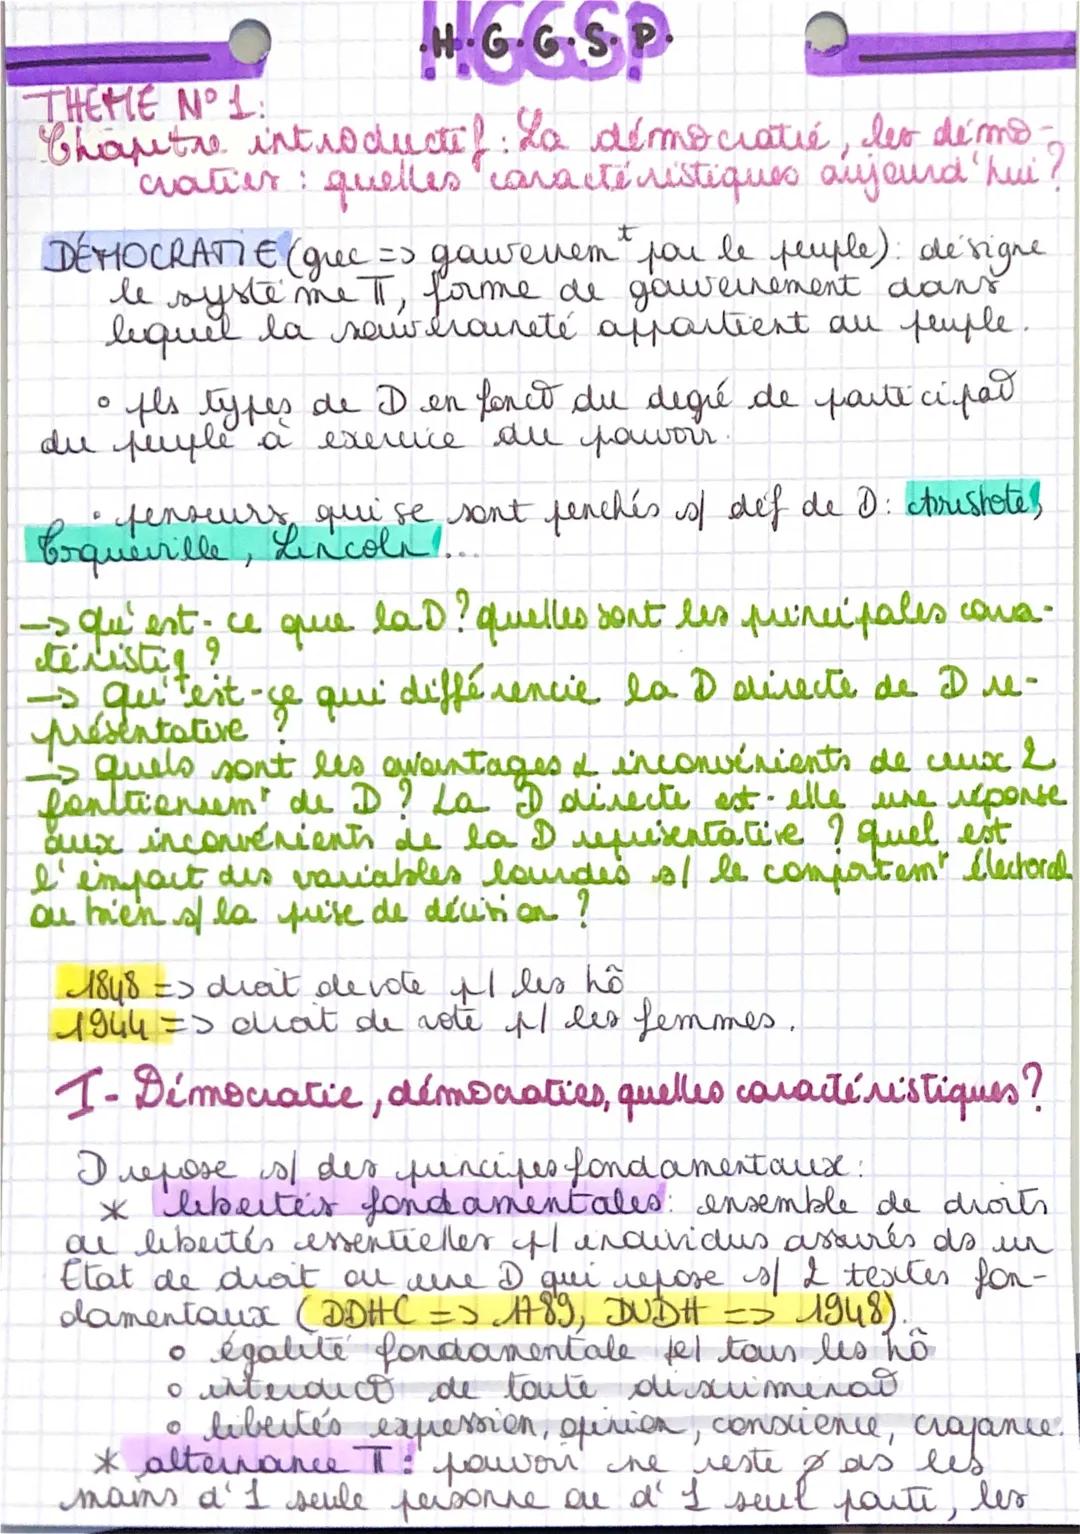 H.G.G.S.P.
THÈME N° 1:
Chapitre introductif : La démocratie, les démo-
craties : quelles caractéristiques aujourd'hui ?
DÉMOCRATIE (grec => gouvernemᵗ par le peuple): désigne
le système π, forme de gouvernement dans
lequel la souveraineté appartient au peuple.
◦ pls types de D en fonct° du degré de participat°
du peuple à exercice du pouvoir.
• penseurs qui se sont penchés s/ déf de D: Aristote,
Tocqueville, Lincoln ...
-> qu'est-ce que la D ? quelles sont les principales cara-
téristiq ?
-> qu'est-ce qui différencie la D directe de D re-
présentative ?
-> quels sont les avantages & inconvénients de ceux 2
fonctionnemᵗ de D ? La D directe est-elle une réponse
aux inconvénients de la D représentative ? quel est
l'impact des variables lourdes s/ le comportemᵗ électoral
ou bien s/ la prise de décision ?
1848 => droit de vote p/ les hô
1944 => droit de vote p/ les femmes.
I - Démocratie, démocraties, quelles caractéristiques ?
D repose s/ des principes fondamentaux :
* libertés fondamentales: ensemble de droits
de libertés essentielles p/ individus assurés ds un
État de droit ou une D qui repose s/ 2 textes fon-
damentaux (DDHC => 1789, DUDH => 1948).
◦ égalité fondamentale p/ tous les hô
◦ interdict° de toute discriminat°
◦ libertés expression, opinion, conscience, croyance.
* alternance π : pouvoir ne reste ds les
mains d'1 seule personne ou d'1 seul parti, les